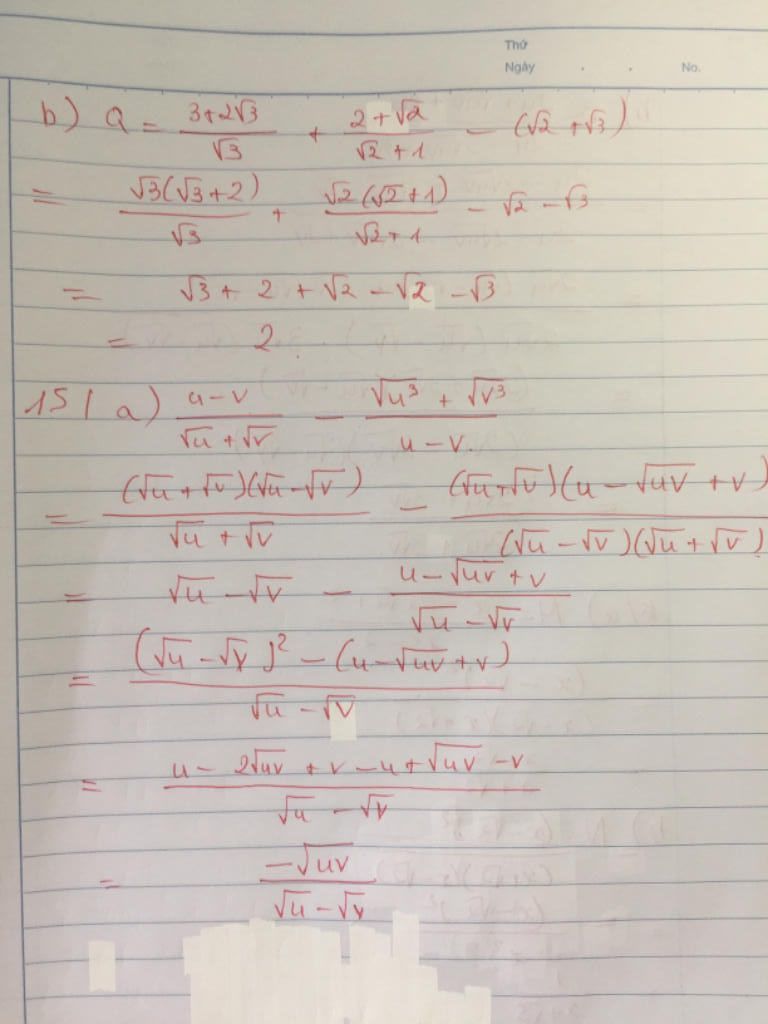 Thứ
Ngày . . No.
b) Q = (3+2√3)/√3 + (2+√2)/(√2+1) - (√2+√3)
= √3(√3+2)/√3 + √2(√2+1)/(√2+1) - √2 - √3
= √3 + 2 + √2 - √2 - √3
= 2.
15/ a) (u-v)/(√u+√v) - (√u³+√v³)/(u-v)
= (√u+√v)(√u-√v)/(√u+√v) - (√u+√v)(u-√uv+v)/(√u-√v)(√u+√v)
= √u-√v - (u-√uv+v)/(√u-√v)
= ((√u-√v)² - (u-√uv+v))/(√u-√v)
= (u-2√uv+v-u+√uv-v)/(√u-√v)
= -√uv/(√u-√v)